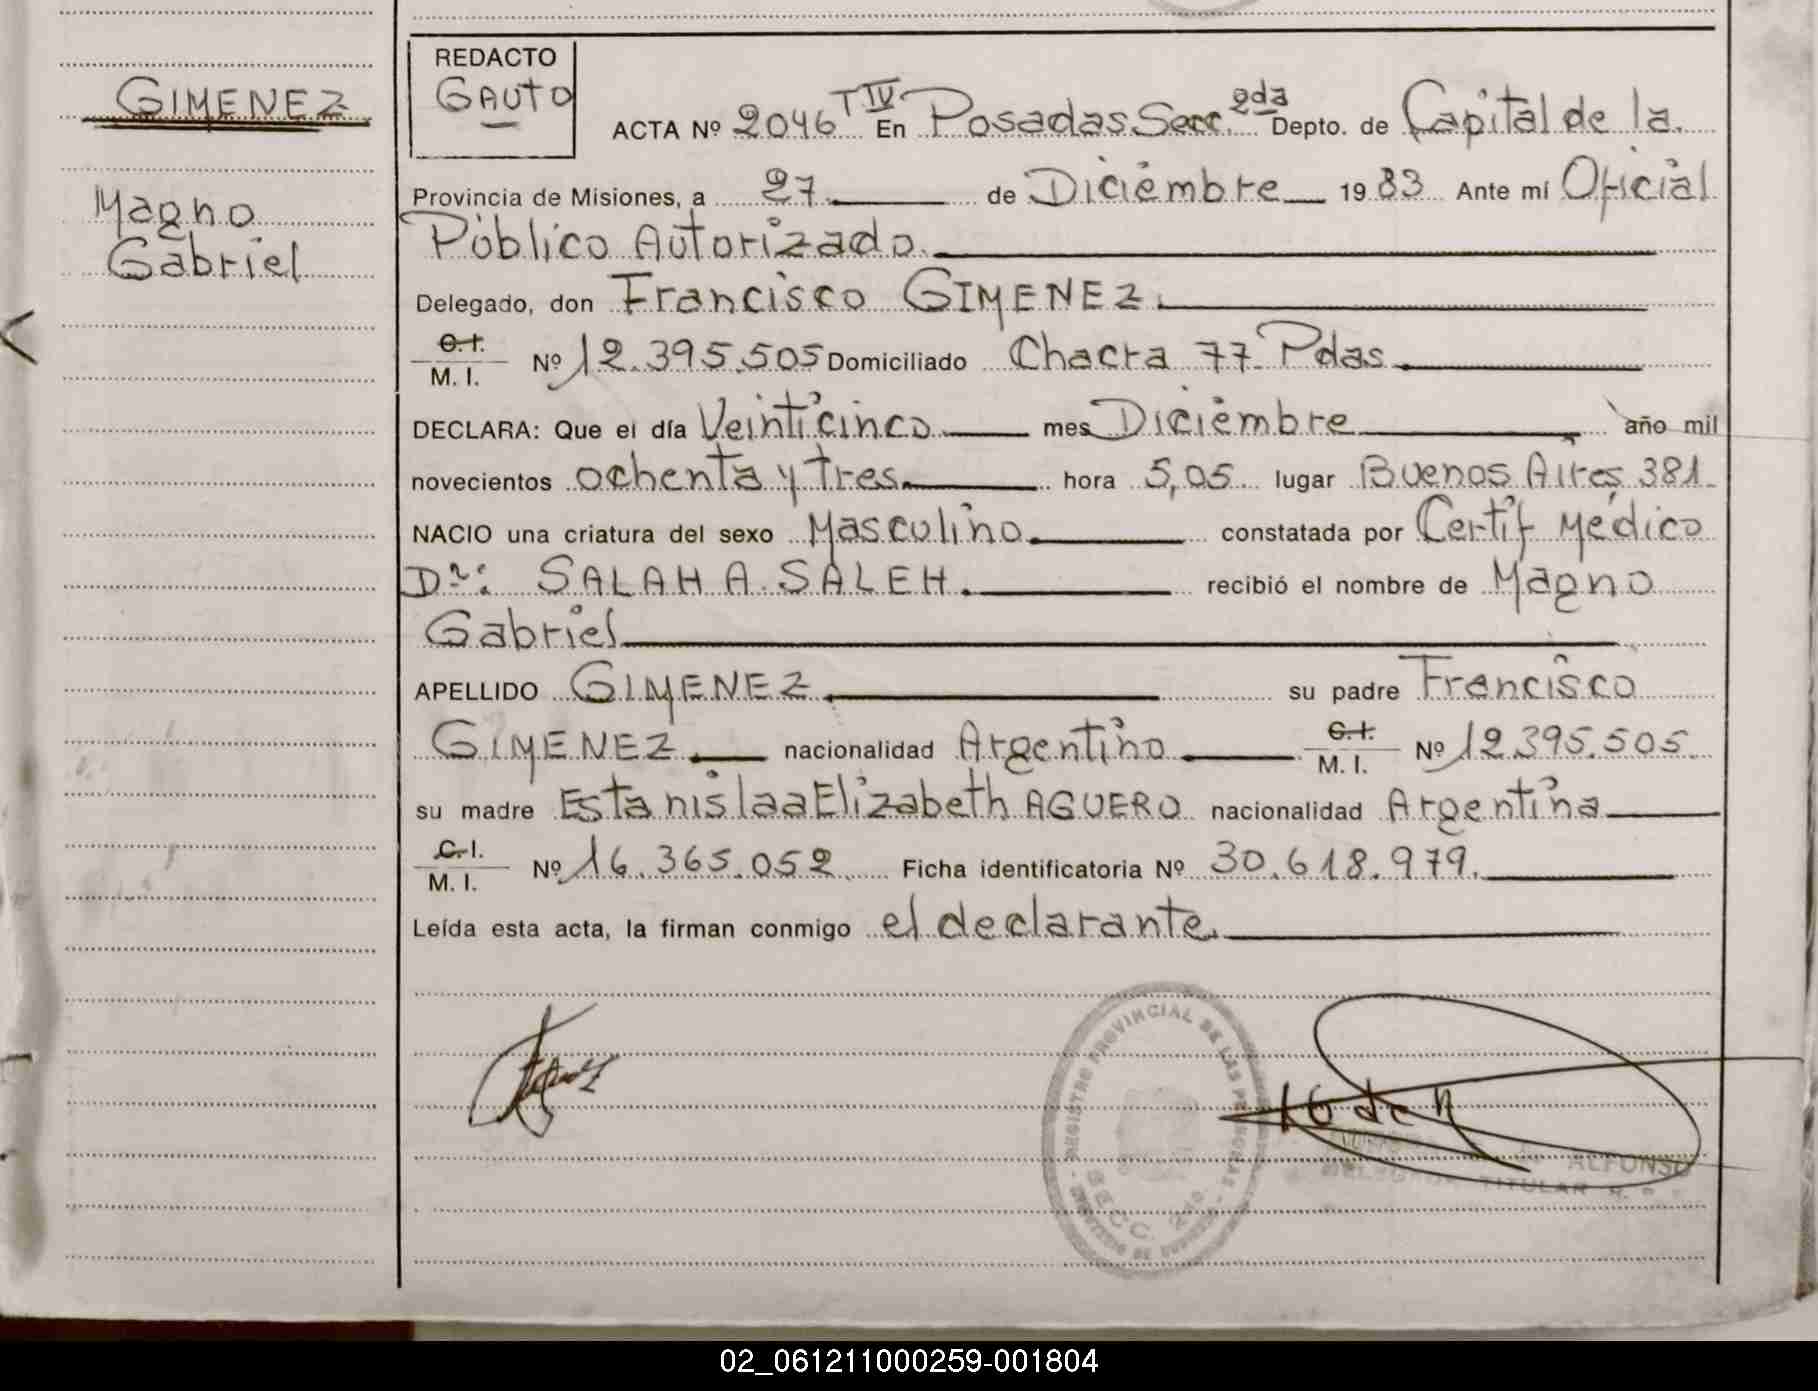 GIMENEZ
Magno
Gabriel
REDACTO
GAUTO
ACTA Nº 2046 T IV En Posadas Secc. 2da Depto. de Capital de la
Provincia de Misiones, a 27 de Diciembre 19 83 Ante mí Oficial
Público Autorizado.
Delegado, don Francisco GIMENEZ.
C.I. M. I. Nº 12.395.505 Domiciliado Chacra 77 Pdas
DECLARA: Que el día Veinticinco mes Diciembre año mil
novecientos ochenta y tres hora 5,05 lugar Buenos Aires 381
NACIO una criatura del sexo Masculino constatada por Certif Médico
Dr: SALAH A. SALEH. recibió el nombre de Magno
Gabriel
APELLIDO GIMENEZ su padre Francisco
GIMENEZ nacionalidad Argentino C.I. M. I. Nº 12.395.505
su madre Estanislaa Elizabeth AGUERO nacionalidad Argentina
C.I. M. I. Nº 16.365.052 Ficha identificatoria Nº 30.618.979.
Leída esta acta, la firman conmigo el declarante.
REGISTRO PROVINCIAL DE LAS PERSONAS
SECC. 2da.
ALFONSO
TITULAR
02_061211000259-001804